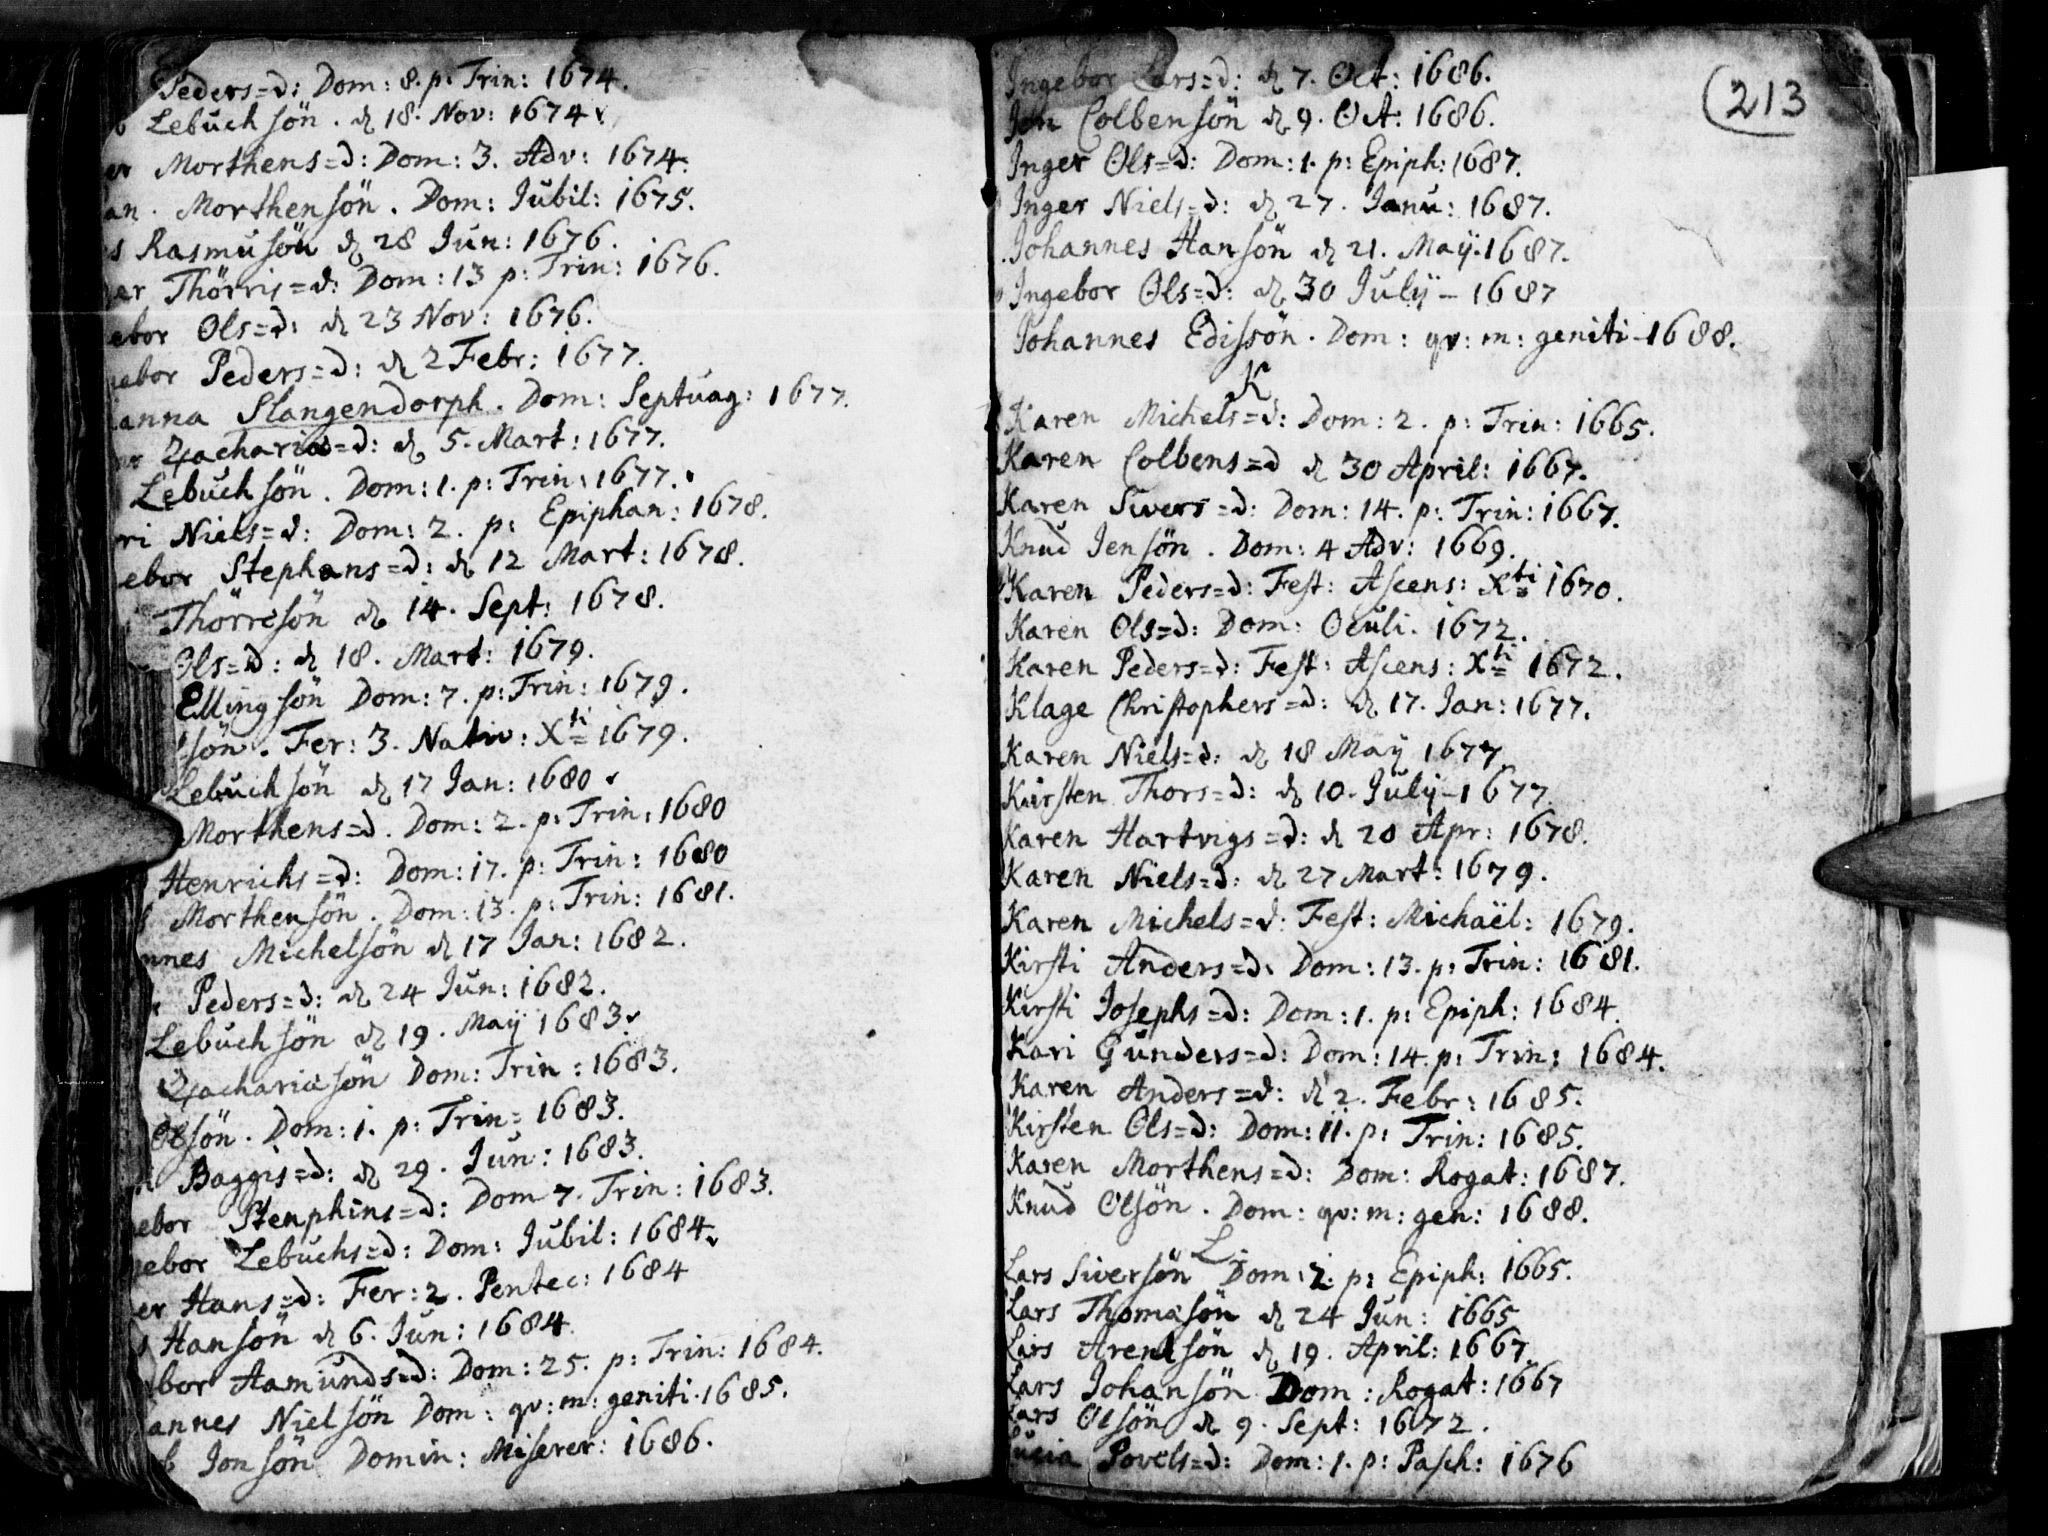 Peders=d: Dom: 8. p: Trin: 1674.
Lebuch sön. d 18. Nov: 1674
Morthens=d: Dom: 3. Adv: 1674.
Morthensön. Dom: Jubil: 1675.
Rasmusön d 28 Jun: 1676.
er Thörris=d: Dom: 13 p: Trin: 1676.
ebor Ols=d: d 23 Nov: 1676.
ebor Peders=d: d 2 Febr: 1677.
anna Slangendorph. Dom: Septuag: 1677.
Zacharias=d: d 5. Mart: 1677.
Lebuch sön. Dom: 1. p: Trin: 1677.
ri Niels=d: Dom: 2. p: Epiphan: 1678.
ebor Stephans=d: d 12 Mart: 1678.
Thörresön d 14. Sept: 1678.
Ols=d: d 18. Mart: 1679.
Ellingsön Dom: 7. p: Trin: 1679.
sön. Fer: 3. Nativ: Xti 1679.
Lebuch sön d 17 Jan: 1680
Morthens=d. Dom: 2. p: Trin: 1680
Henrichs=d: Dom: 17. p: Trin: 1680
Morthensön. Dom: 13. p: Trin: 1681.
nnes Michelsön d 17 Jan: 1682.
Peders=d: d 24 Jun: 1682.
Lebuch sön d 19. May 1683
Zachariasön Dom: Trin: 1683.
Olsön. Dom: 1. p: Trin: 1683.
Baggis=d: d 29. Jun: 1683.
ebor Stenphins=d: Dom 7. Trin: 1683.
gebor Lebuchs=d: Dom: Jubil: 1684
er Hans=d: Fer: 2. Pentec: 1684
Hansön d 6. Jun: 1684.
bor Aamunds=d: Dom: 25. p: Trin: 1684.
annes Nielsön Dom: qv: m: geniti. 1685.
Jonsön Domin: Miserer: 1686.
213
Ingebor Lars=d: d 7. Oct: 1686.
Jon Colbensön d 9. Oct: 1686.
Inger Ols=d: Dom: 1. p: Epiph: 1687.
Inger Niels=d: d 27. Janu: 1687.
Johannes Hansön d 21. Maÿ. 1687.
Ingebor Ols=d: d 30 Julÿ - 1687
Johannes Edissön. Dom: qv: m: geniti - 1688.
K
Karen Michels=d: Dom: 2. p: Trin: 1665.
Karen Colbens=d d 30 April: 1667.
Karen Sivers=d: Dom: 14. p: Trin: 1667.
Knud Jensön. Dom: 4 Adv: 1669.
Karen Peders=d: Fest: Ascens: Xti 1670.
Karen Ols=d: Dom: Oculi. 1672.
Karen Peders=d: Fest: Ascens: Xti 1672.
Klage Christophers=d: d 17. Jan: 1677.
Karen Niels=d: d 18 Maÿ 1677
Kirsten Thors=d: d 10. Julÿ - 1677
Karen Hartvigs=d: d 20 Apr: 1678.
Karen Niels=d: d 27 Mart: 1679.
Karen Michels=d: Fest: Michaël: 1679.
Kirsti Anders=d: Dom: 13. p: Trin: 1681.
Kirsti Josephs=d: Dom: 1. p: Epiph: 1684.
Kari Gunders=d: Dom: 14. p: Trin: 1684.
Karen Anders=d: d 2. Febr: 1685.
Kirsten Ols=d: Dom: 11. p: Trin: 1685.
Karen Morthens=d: Dom: Rogat: 1687.
Knud Olsön. Dom: qv: m: gen: 1688.
L.
Lars Siversön Dom: 2. p: Epiph: 1665.
Lars Thomasön d 24 Jun: 1665
Lars Arentsön d 19. April: 1667.
Lars Johansön Dom: Rogat: 1667
Lars Olsön d 9. Sept: 1672.
Lucia Povels=d: Dom: 1. p: Pasch: 1676